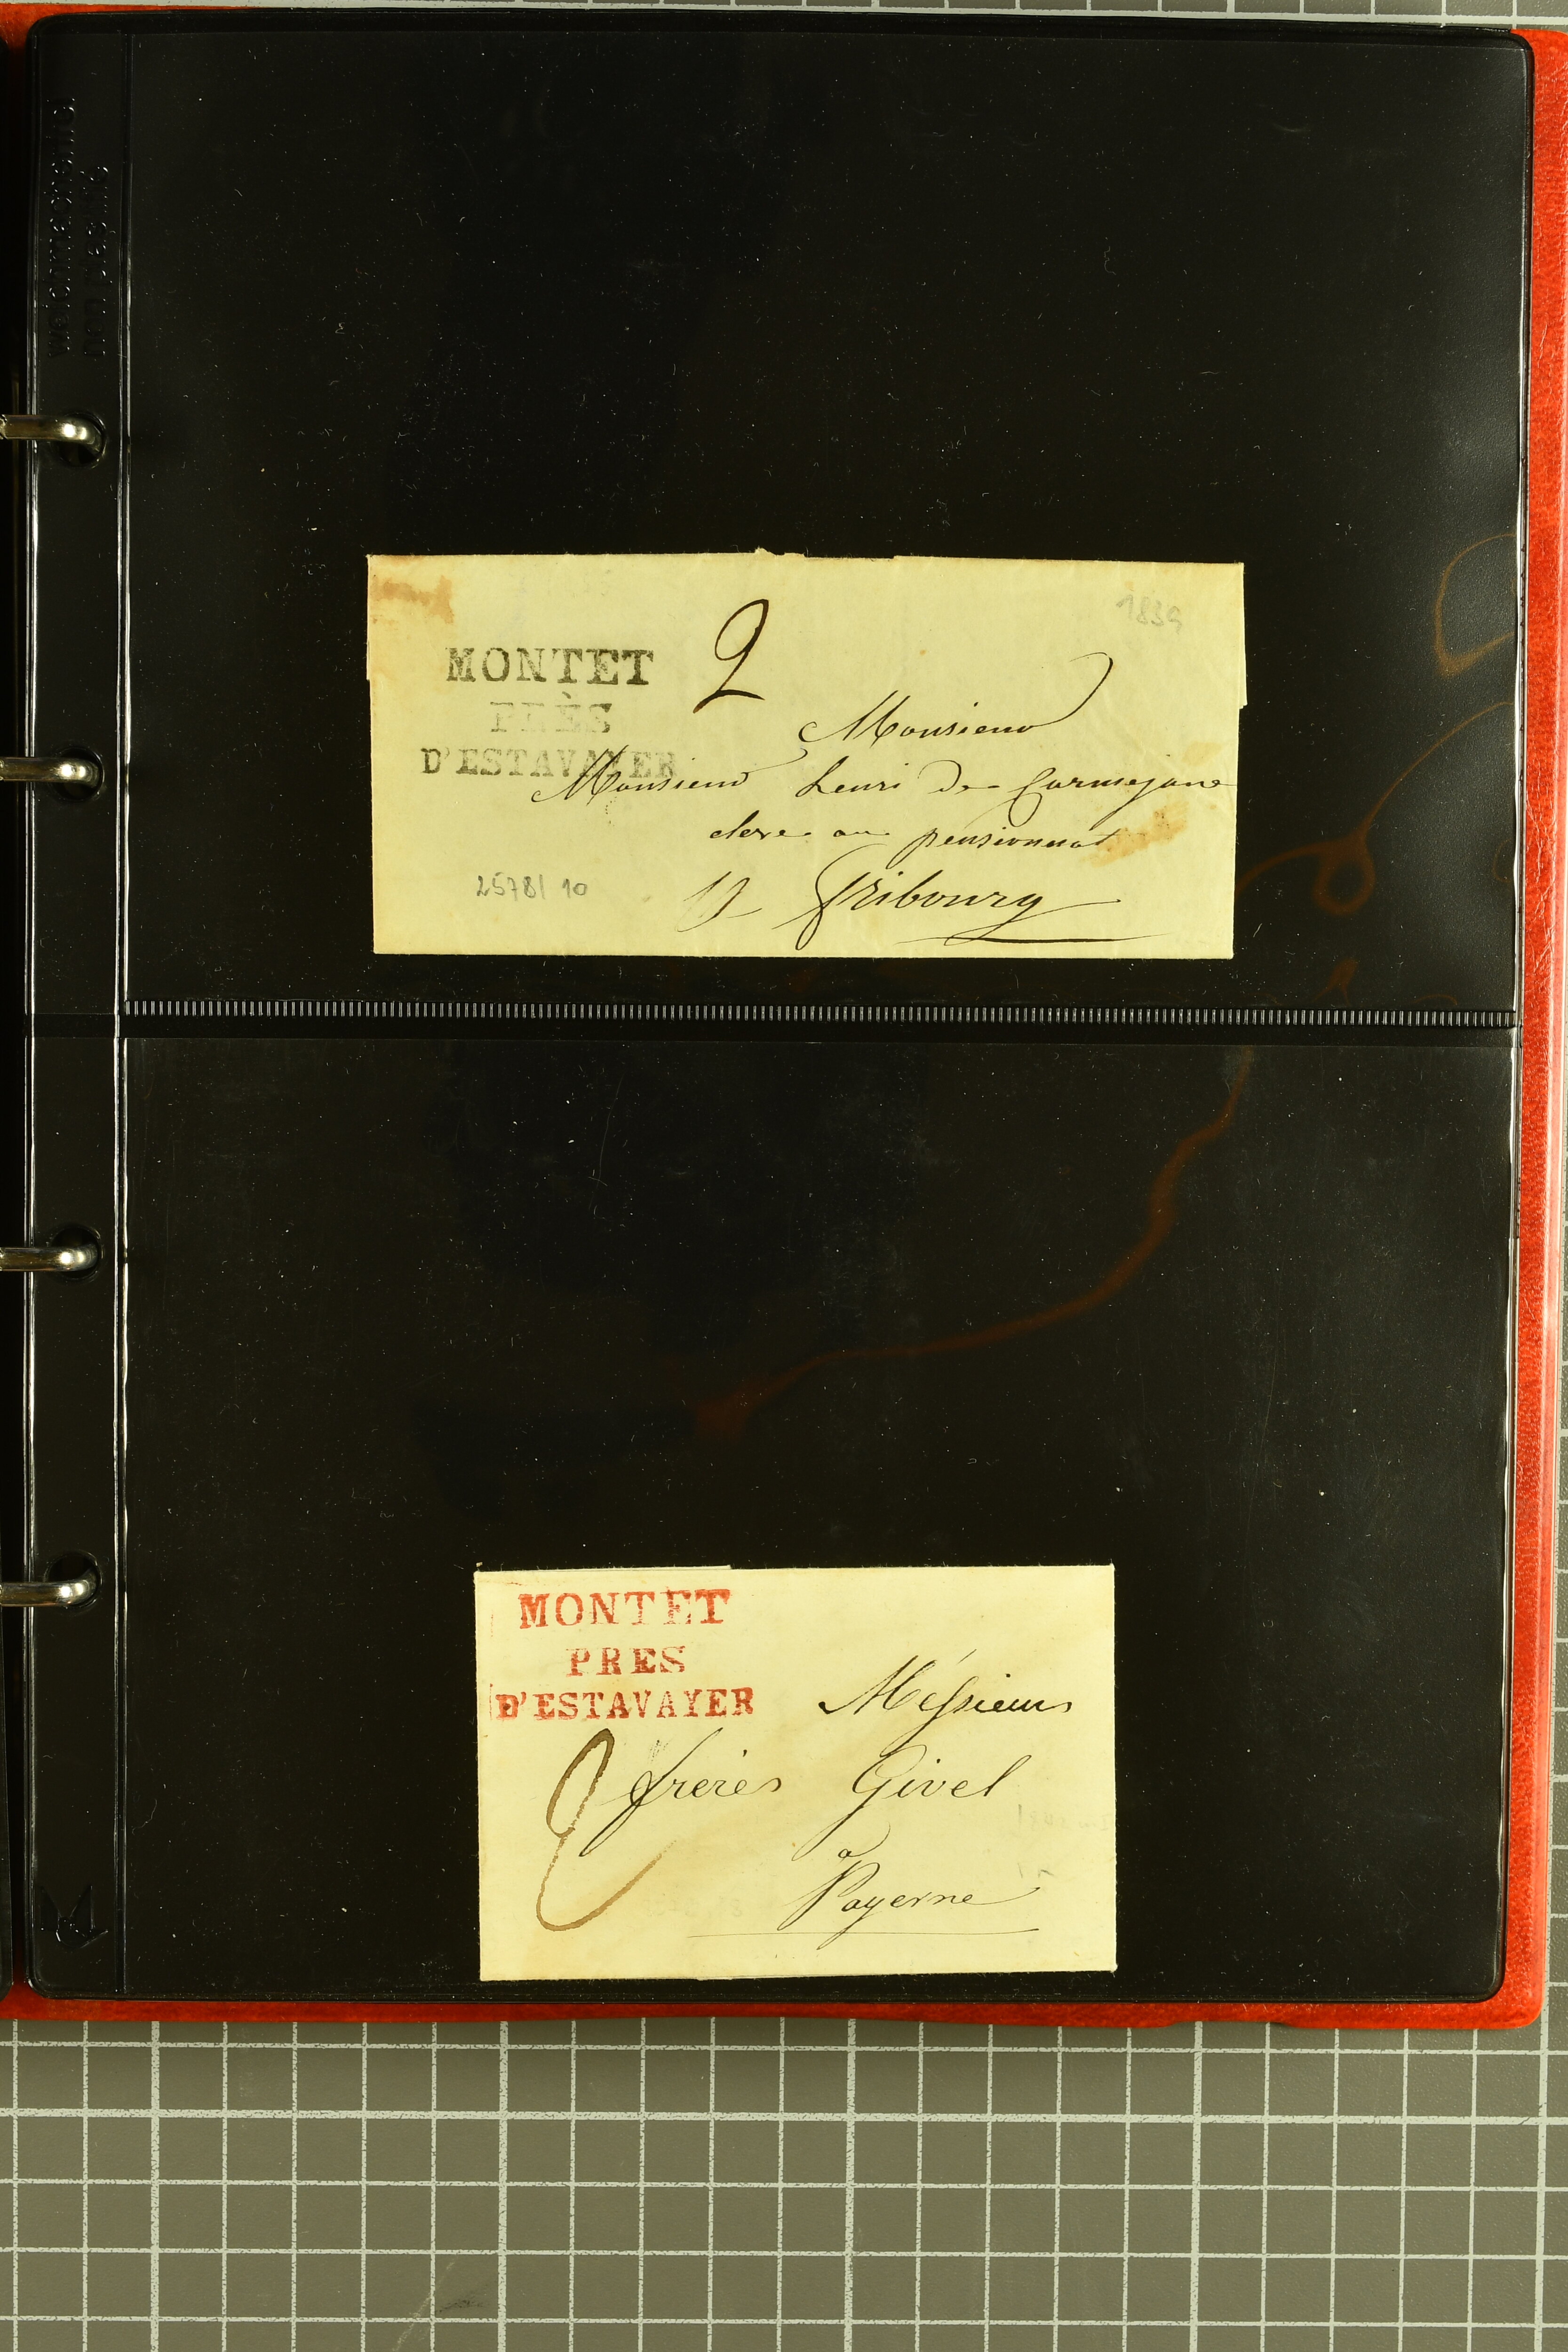 1839
MONTET 2
PRÈS
D'ESTAVAYER
Monsieur
Monsieur henri De Carmejane
eleve au pensionnat
à fribourg
2578/ 10
MONTET
PRES
D'ESTAVAYER
Méssieurs
2 frères Givel
a
Payerne